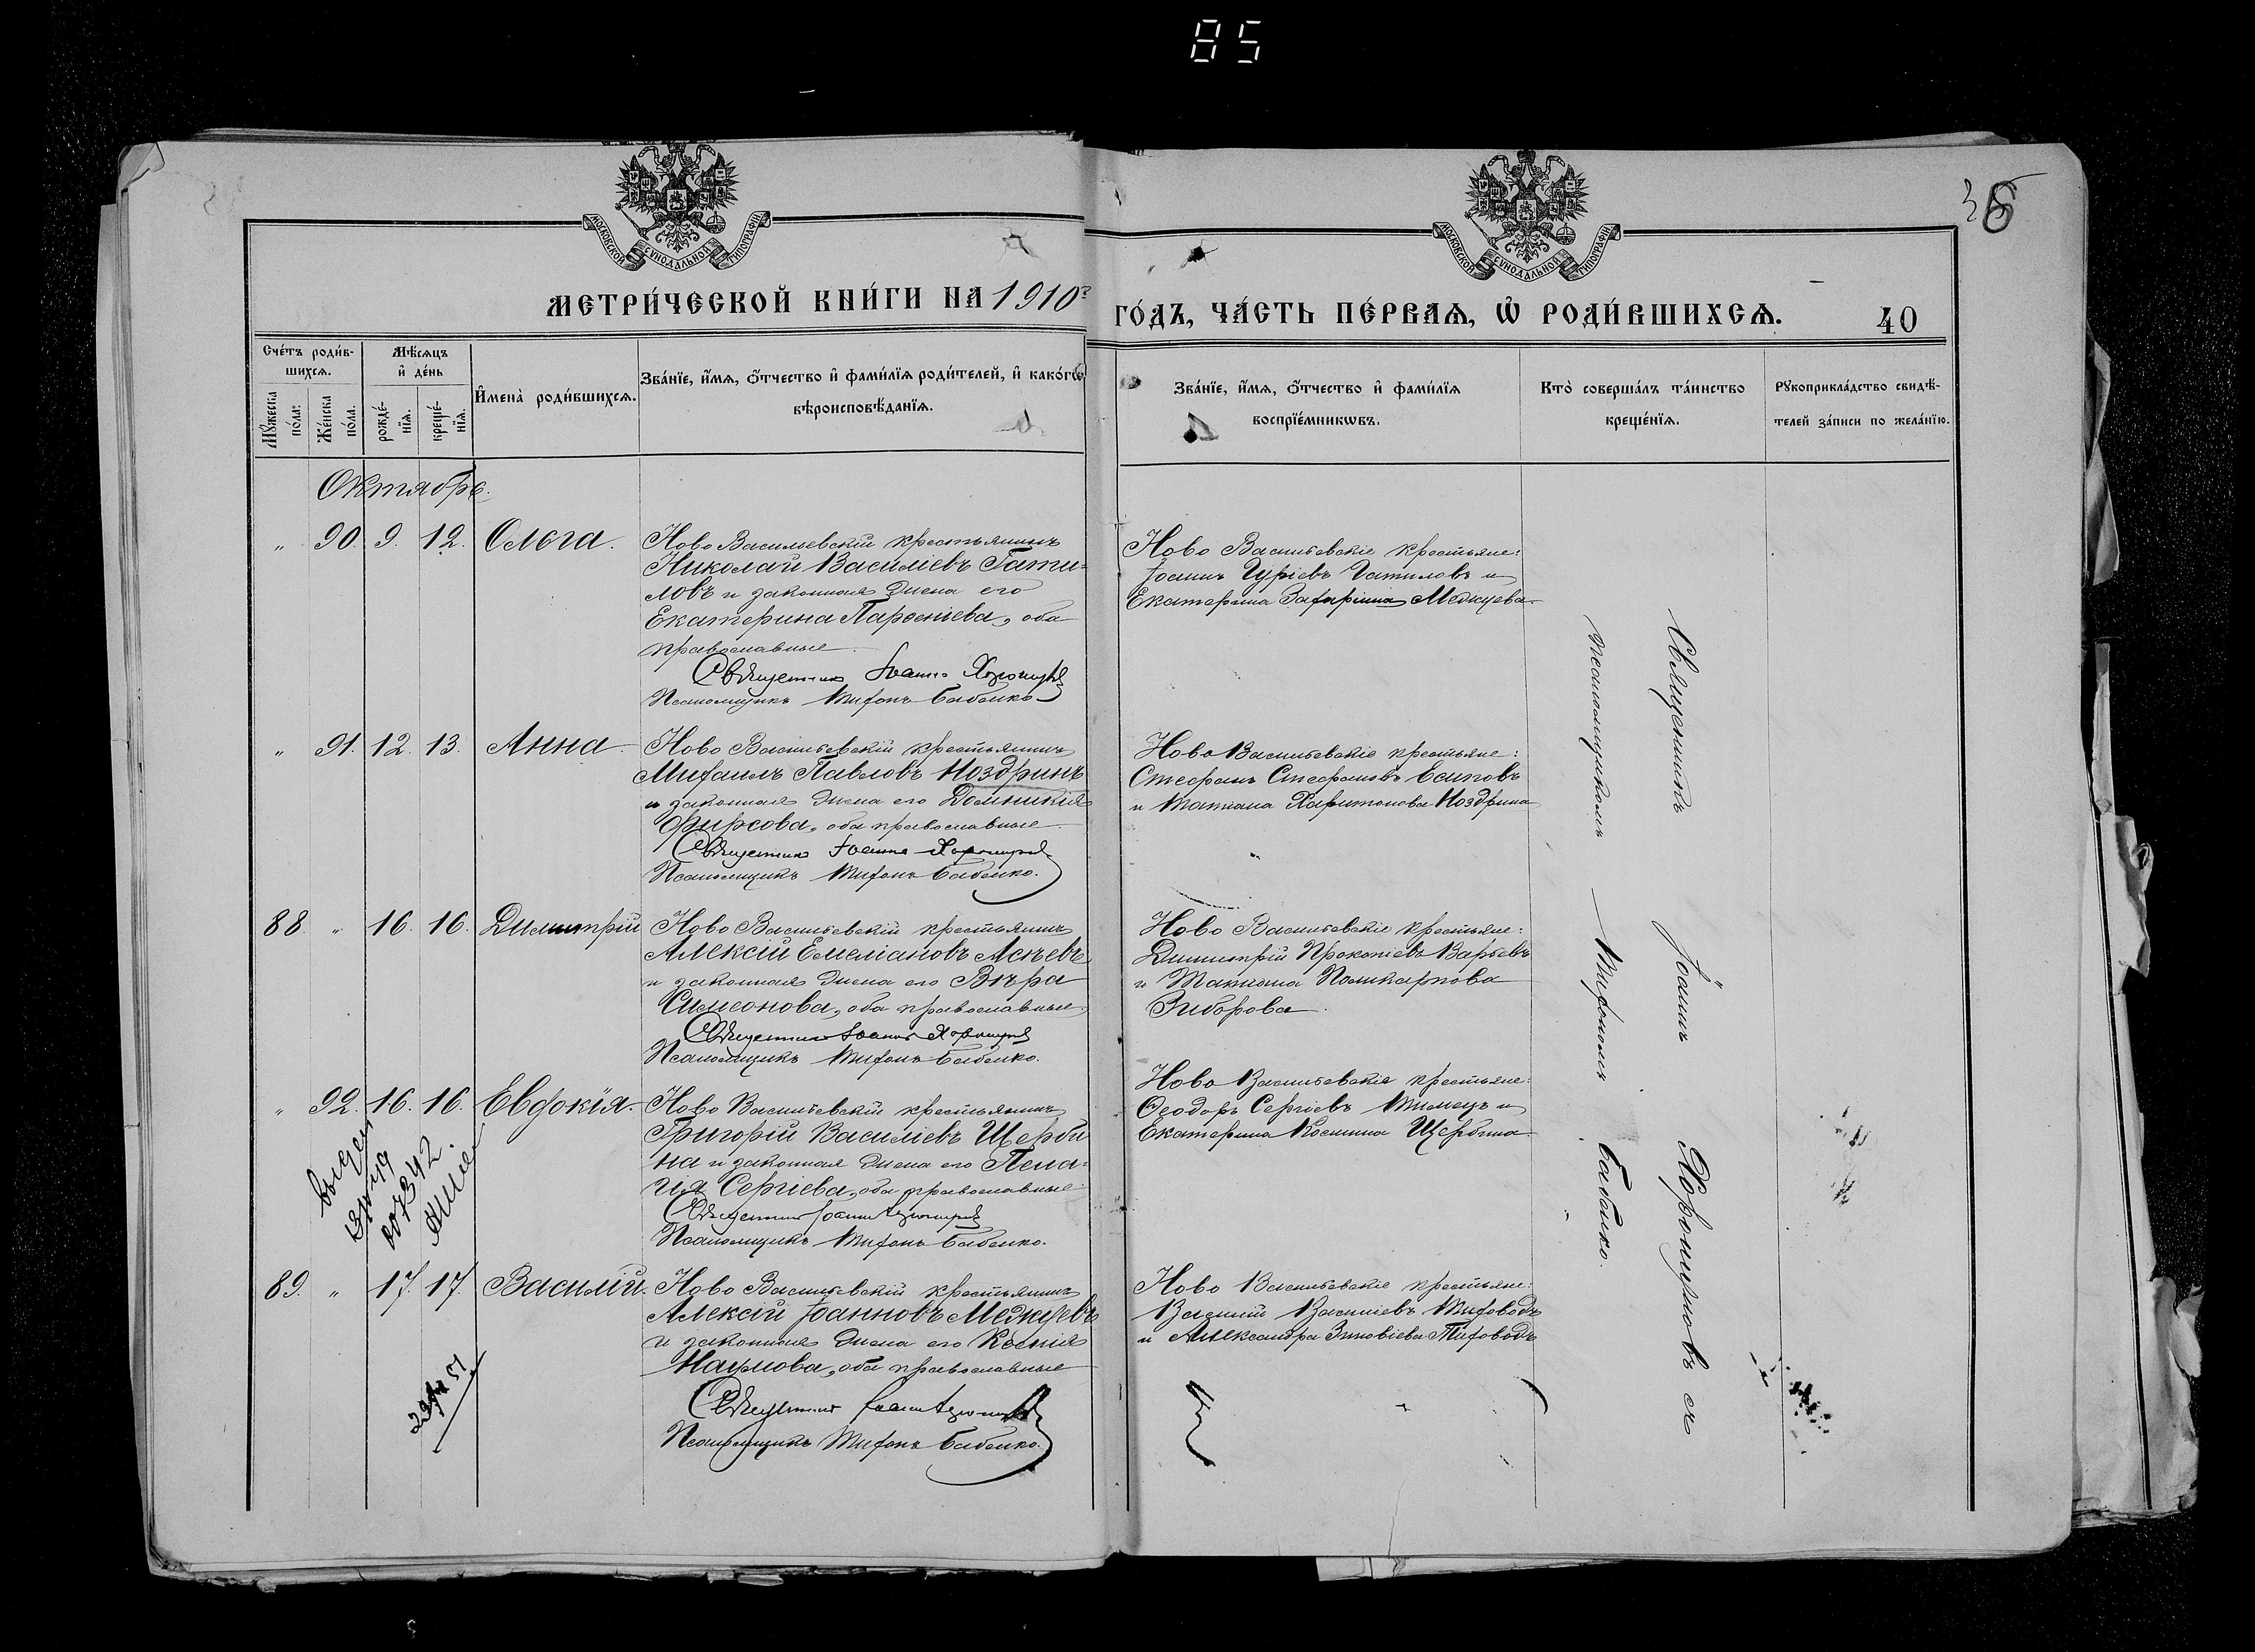 85
38
МОСКОВСКОЙ СУНОДАЛЬНОЙ ТИПОГРАФІИ
МОСКОВСКОЙ СУНОДАЛЬНОЙ ТИПОГРАФІИ
МЕТРИ́ЧЕСКОЙ КНИ́ГИ НА 1910г
ГО́ДЪ, ЧА́СТЬ ПЕ́РВАѦ, Ѡ҆ РОДИ́ВШИХСѦ.
40
Сче́тъ роди́в-
шихсѧ.
Мѣ́сѧцъ
и҆ де́нь
Мꙋ́жеска
по́ла.
Же́нска
по́ла.
рожде́-
нїѧ.
креще́-
нїѧ.
И҆мена̀ роди́вшихсѧ.
Зва́нїе, и҆́мѧ, ѻ҆́тчество и҆ фами́лїѧ роди́телей, и҆ како́гѡ
вѣроисповѣ́данїѧ.
Зва́нїе, и҆́мѧ, ѻ҆́тчество и҆ фами́лїѧ
воспрїе́мникѡвъ.
Кто̀ соверша́лъ та́инство
креще́нїѧ.
Рꙋкоприкла́дство свидѣ́-
телей за́писи по жела́нїю.
Октябрь.
„ 90. 9. 12. Ольга.
Ново Васильевскій крестьянинъ
Николай Василіевъ Гати-
ловъ и законная жена его
Екатерина Парѳеніева, оба
православные
Священникъ Іоаннъ
Псаломщикъ Тихонъ Бабенко
Ново Васильевскіе крестьяне:
Іоаннъ Гуріевъ Гатиловъ и
Екатерина Захаріина Межуева.
„ 91. 12. 13. Анна.
Ново Васильевскій крестьянинъ
Михаилъ Павловъ Ноздринъ
и законная жена его Домникія
Фирсова, оба православные
Священникъ Іоаннъ
Псаломщикъ Тихонъ Бабенко.
Ново Васильевскіе крестьяне:
Стефанъ Стефановъ Есиповъ
и Татіана Харитонова Ноздрина
88 „ 16. 16. Димитрій
Ново Васильевскій крестьянинъ
Алексій Емеліановъ Асѣевъ
и законная жена его Вѣра
Симеонова, оба православные.
Священникъ Іоаннъ
Псаломщикъ Тихонъ Бабенко.
Ново Васильевскіе крестьяне:
Димитрій Прокопіевъ
и Татіана Поликарпова
Зиборова.
„ 92. 16. 16. Евдокія.
Ново Васильевскій крестьянинъ
Григорій Василіевъ Щерби
на и законная жена его Пела-
гія Сергіева, оба православные
Священникъ Іоаннъ
Псаломщикъ Тихонъ Бабенко.
Ново Васильевскіе крестьяне:
Ѳеодоръ Сергіевъ и
Екатерина Космина Щербина.
89. „ 17. 17. Василій.
Ново Васильевскій крестьянинъ
Алексій Іоанновъ Межуевъ
и законная жена его Ксенія
Наумова, оба православные
Священникъ Іоаннъ
Псаломщикъ Тихонъ Бабенко.
Ново Васильевскіе крестьяне:
Василій Василіевъ Тиховодъ
и Александра Зиновіева Тиховодъ
Священникъ Іоаннъ съ
псаломщикомъ Тихономъ Бабенко.